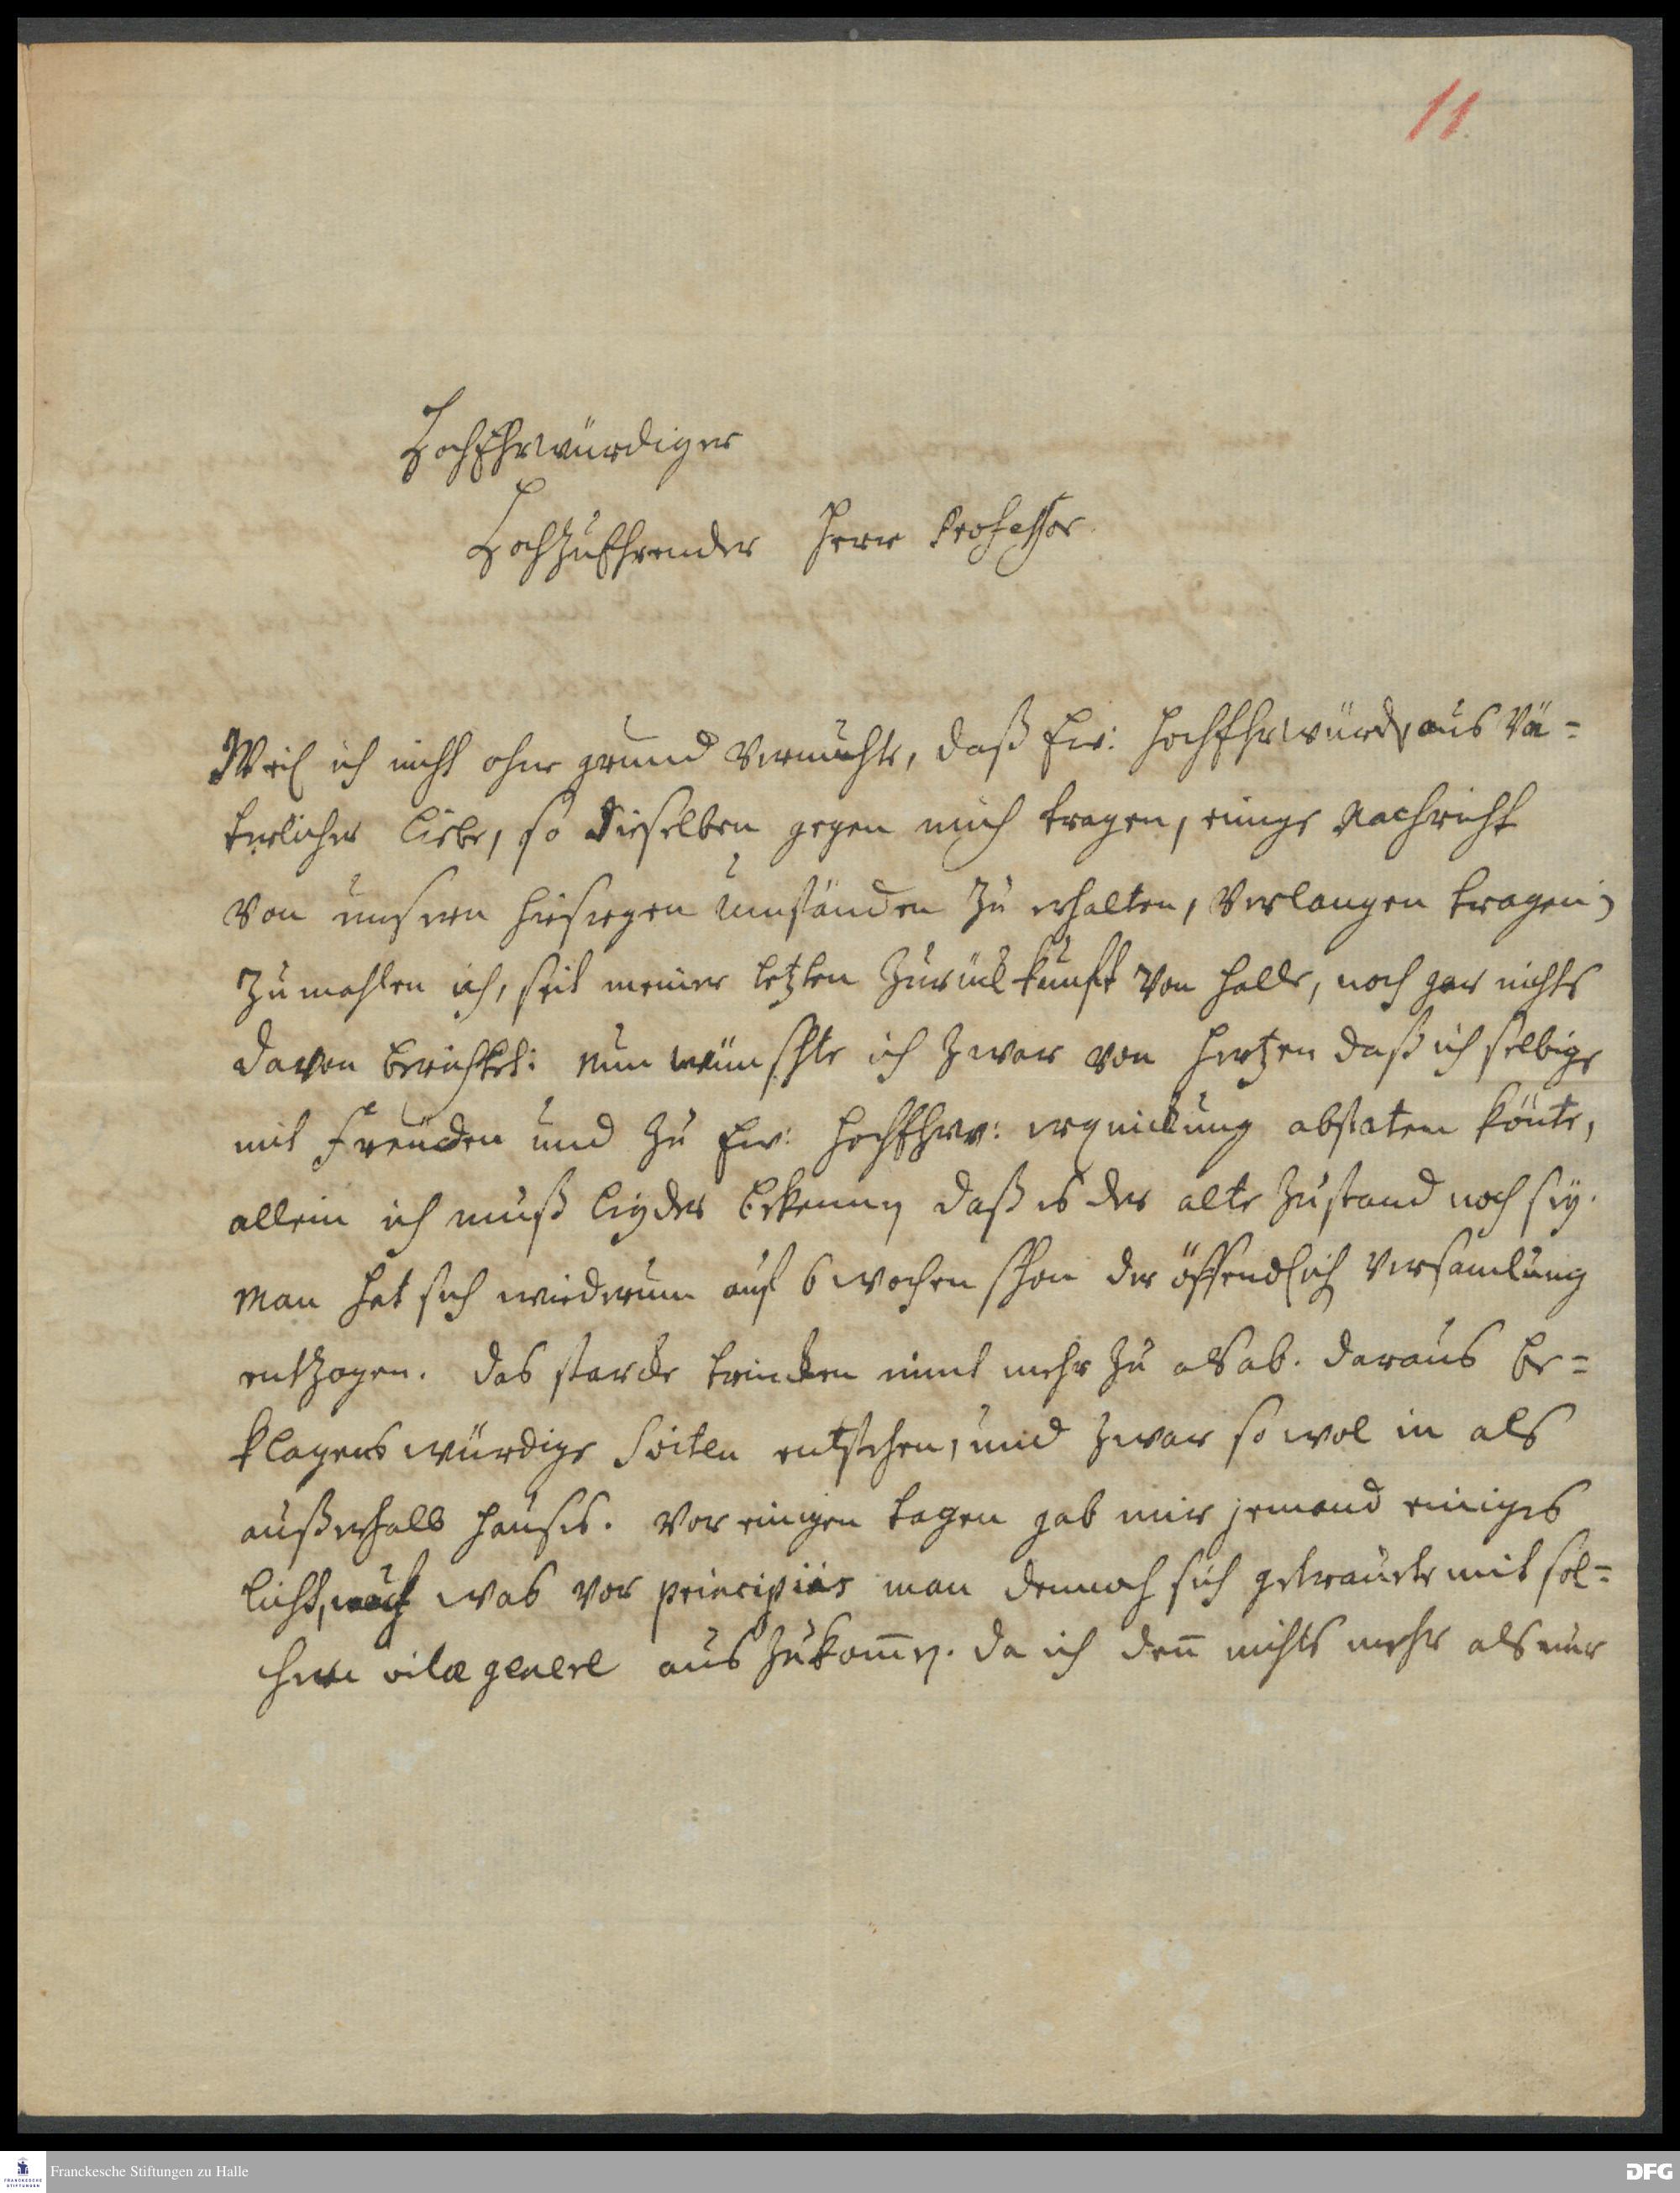 11.
HochEhrwürdiger
HochZuEhrender Herr Professor.
Weil ich nicht ohne grund vermuhte, daß Ew: HochEhrwürd. aus Vä=
terlicher Liebe, so Dieselben gegen mich tragen, einige Nachricht
von unseren hiesiegen Umständen zu erhalten, verlangen tragen;
Zumahlen ich, seit meiner letzten Zurükkunft von Halle, noch gar nichts
davon berichtet: Nun wünschte ich zwar von Hertzen daß ich selbige
mit Freuden und zu Ew: HochEhrw: erquickung abstaten könte,
allein ich muß leyder bekennen daß es der alte Zustand noch sey.
Man hat sich wiederum auf 6 wochen schon der öffendlich Versamlung
entzogen. Das starcke trincken nimt mehr zu als ab. Daraus be=
klagenswürdige Suiten entstehen, und zwar so wol in als
außerhalb Hauses. Vor einigen tagen gab mir jemand einiges
licht, was vor principiis man dennoch sich getrauete mit sol=
chem vitæ genere auszukommen. da ich den̄ nichts mehr als nur
Franckesche Stiftungen zu Halle
FRANCKESCHE STIFTUNGEN
DFG